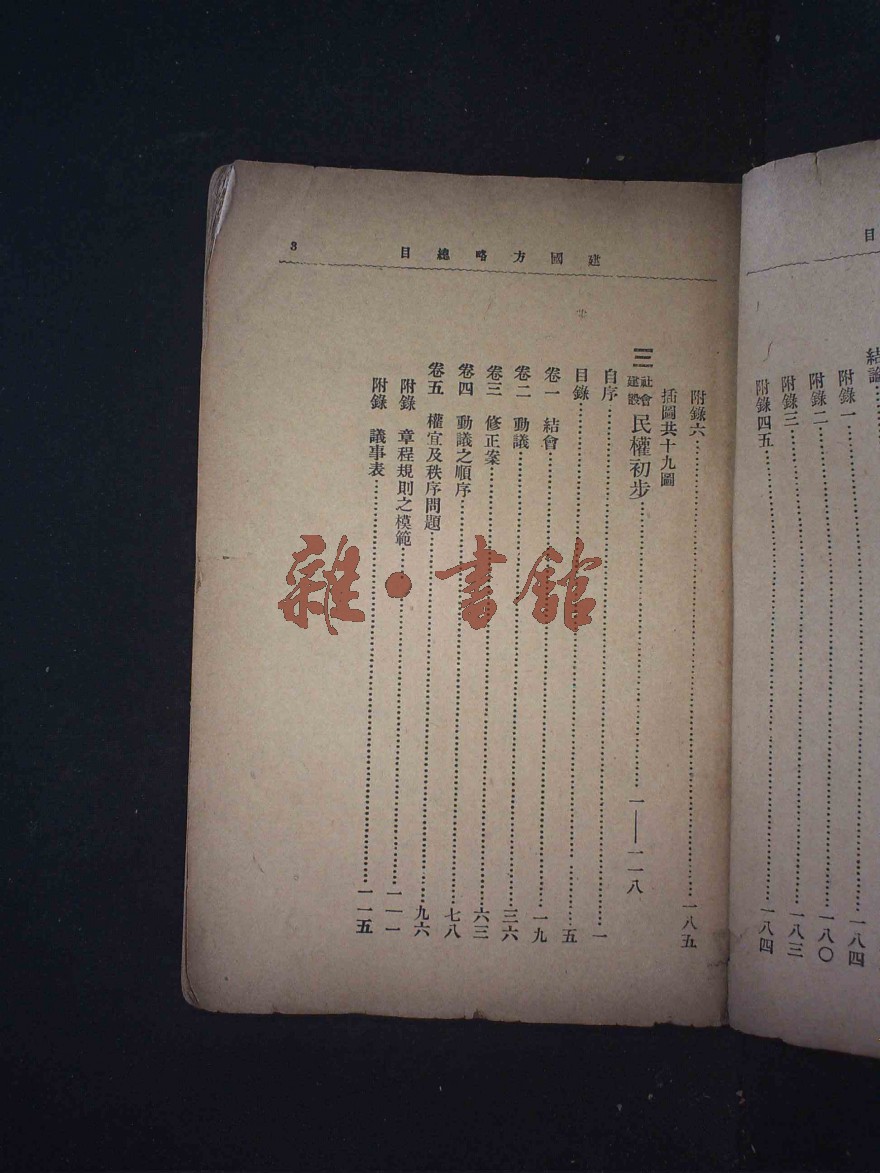 目
結論
附錄一……一八四
附錄二……一八〇
附錄三……一八三
附錄四五……一八四
建國方略總目
3
附錄六……一八五
插圖共十九圖
三 社會建設 民權初步……一——一一八
自序……一
目錄……五
卷一 結會……一九
卷二 動議……三六
卷三 修正案……六三
卷四 動議之順序……七八
卷五 權宜及秩序問題……九六
附錄 章程規則之模範……一一一
附錄 議事表……一一五
雜·書館